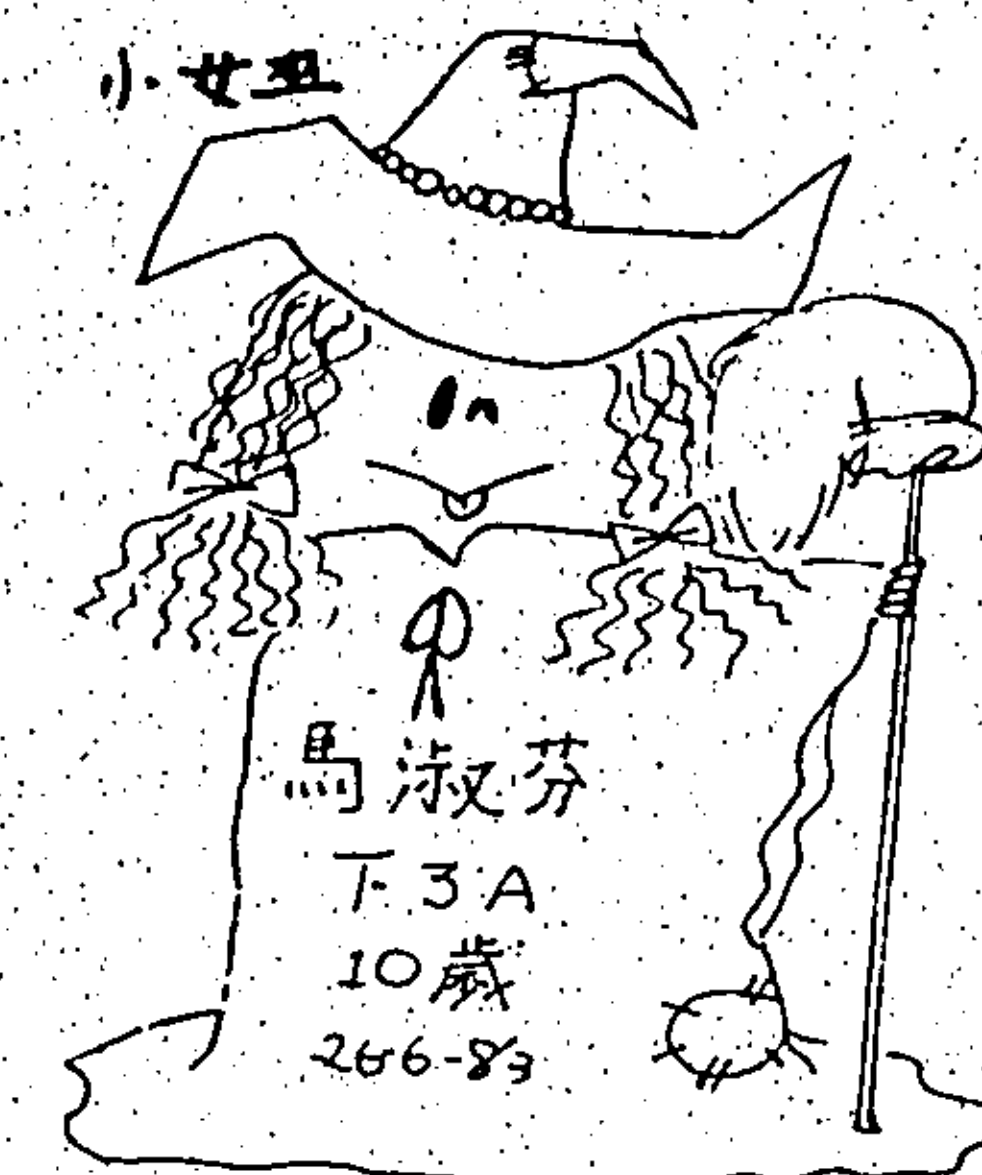 小女巫
馬淑芬
下3A
10歲
266-8/3